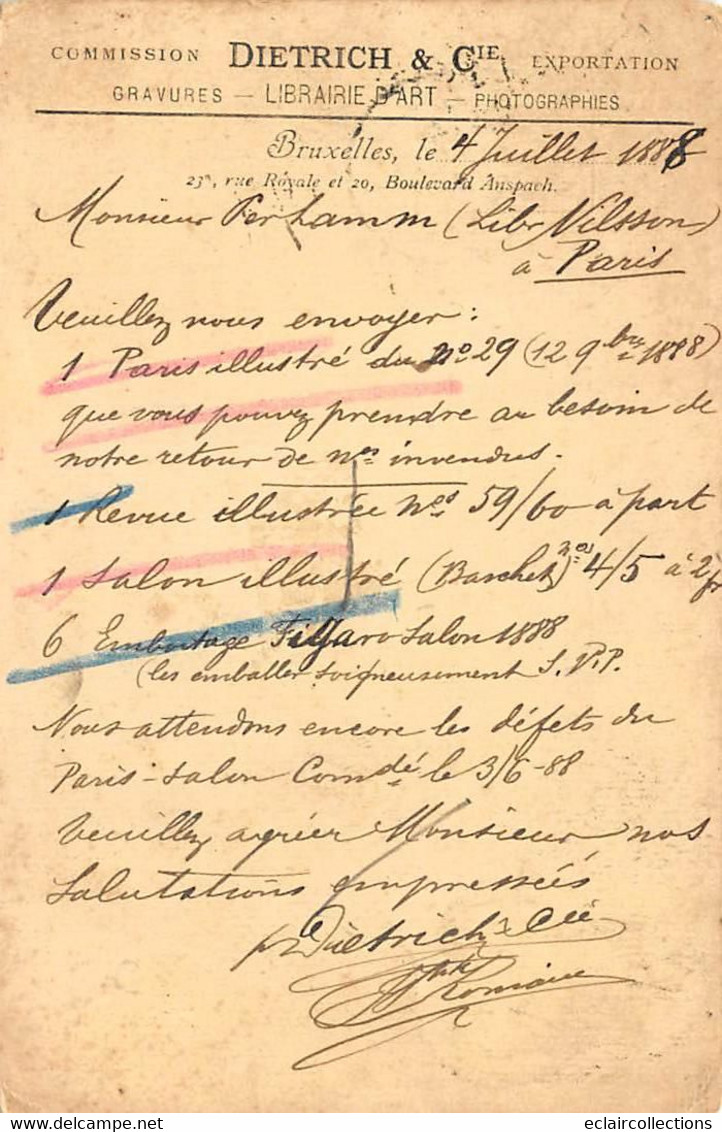 COMMISSION DIETRICH & CIE EXPORTATION
GRAVURES — LIBRAIRIE D'ART — PHOTOGRAPHIES
Bruxelles, le 4 Juillet 1888
23A, rue Royale et 20, Boulevard Anspach.
Monsieur Ferlamm (Libr Nilsson)
à Paris
Veuillez nous envoyer :
1 Paris illustré du nº 29 (12 9bre 1888)
que vous pouvez prendre au besoin de
notre retour de nos invendus.
1 Revue illustrée Nos 59/60 à part
1 Salon illustré (Baschet) nos 4/5 à 2 fr
6 Emboitage Figaro-Salon 1888
(les emballer soigneusement S.V.P.
Nous attendons encore les défets du
Paris-Salon Comdé le 3/6-88
Veuillez agréer Monsieur nos
Salutations empressées
pr Dietrich & Cie
Delcampe.net
eclaircollections